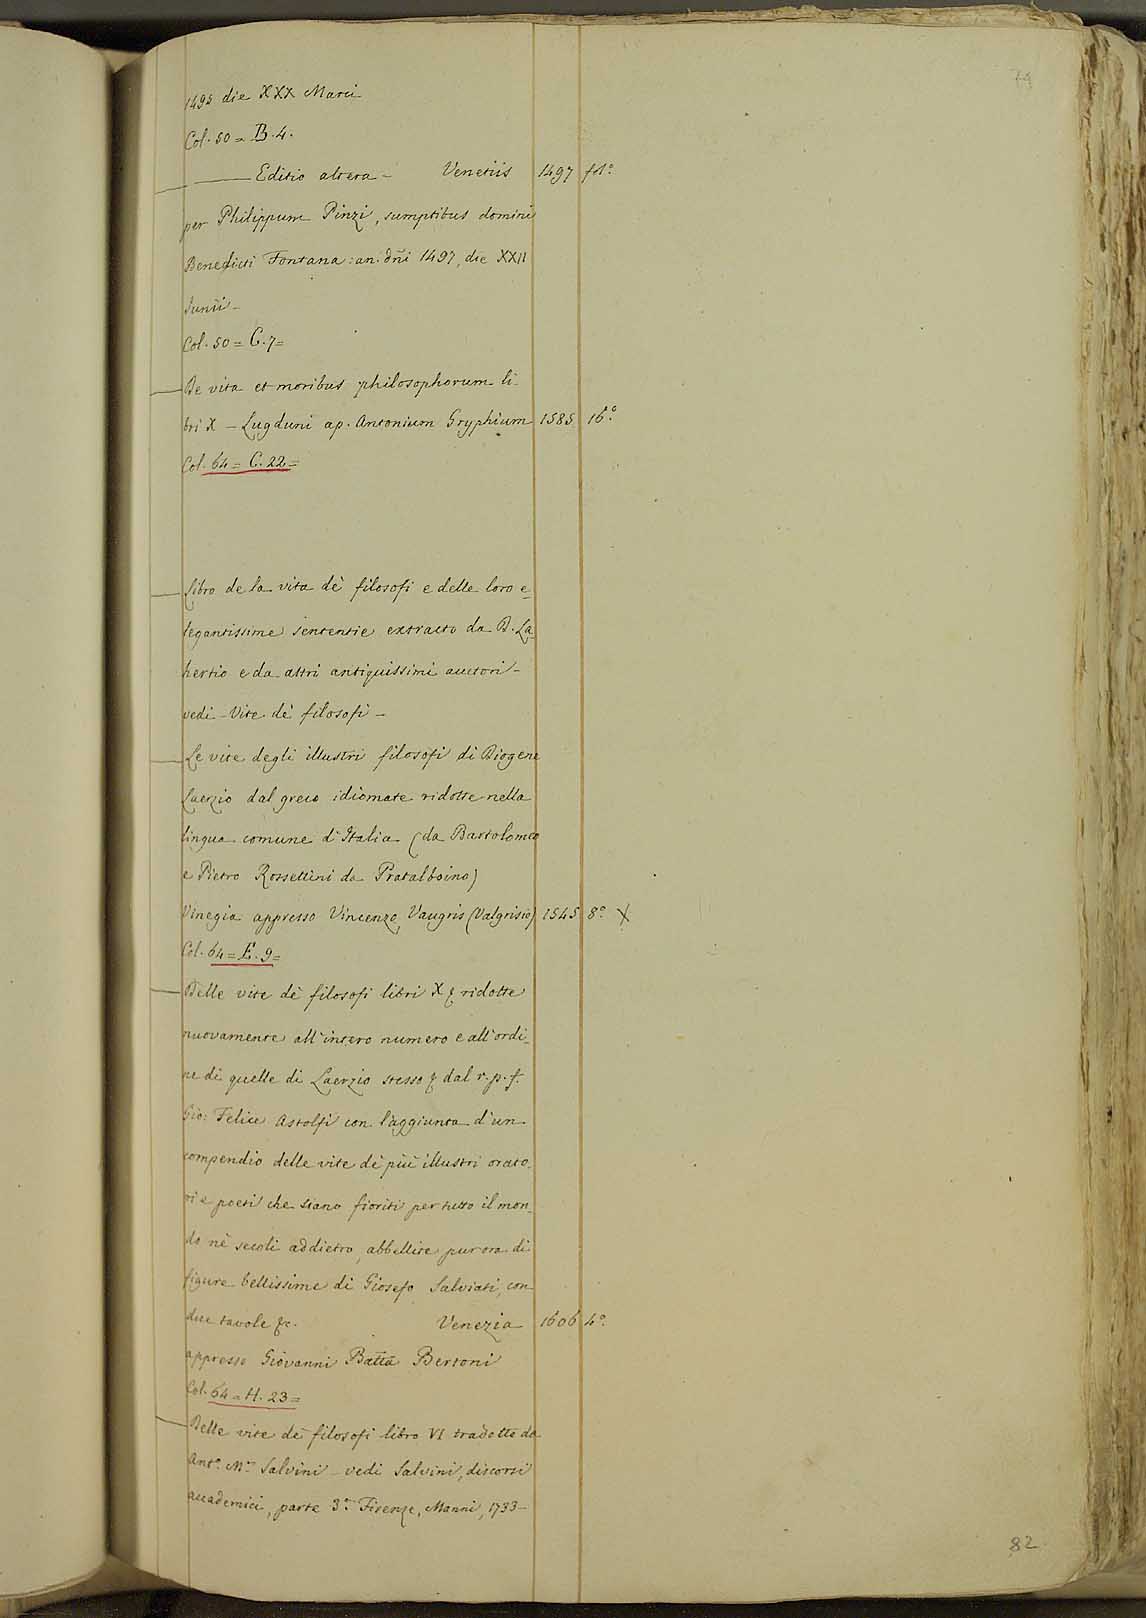 74
1495 die XXX Marci
Col. 50 = B. 4.
Editio altera - Venetiis 1497 fol.º
per Philippum Pinzi, sumptibus domini
Benedicti Fontana: an. dñi 1497, die XXII
Junii -
Col. 50 = C. 7 =
De vita et moribus philosophorum li-
bri X - Lugduni ap. Antonium Gryphium 1585 16º
Col. 64 = C. 22 =
Libro de la vita dè filosofi e delle loro e-
legantissime sententie extracto da D. La-
hertio e da altri antiquissimi auctori -
vedi - Vite dè filosofi -
Le vite degli illustri filosofi di Diogene
Laerzio dal greco idiomate ridotte nella
lingua comune d'Italia (da Bartolomeo
e Pietro Rossettini da Pratalboino)
Vinegia appresso Vincenzo Vaugris (Valgrisio) 1545 8º X
Col. 64 = E. 9 =
Delle vite dè filosofi libri X & ridotte
nuovamente all'intero numero e all'ordi-
ne di quelle di Laerzio stesso & dal r. p. f.
Gio: Felice Astolfi con l'aggiunta d'un
compendio delle vite dè più illustri orato-
ri e poeti che siano fioriti per tutto il mon-
do nè secoli addietro, abbellite pur ora di
figure bellissime di Giosefo Salviati, con
due tavole &c. Venezia 1606 4º
appresso Giovanni Batta Bertoni
Col. 64 = H. 23 =
Delle vite dè filosofi libro VI tradotte da
Antº Mª Salvini - vedi Salvini, discorsi
accademici, parte 3ª Firenze, Manni, 1733 -
82